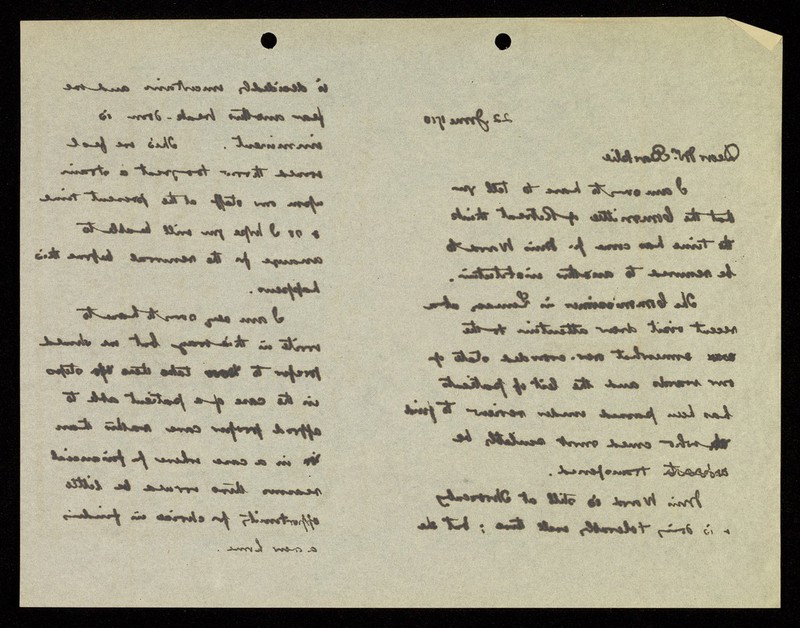 22 June 1910
Dear Mr. Barklie
I am sorry to have to tell you
that the Committee of Retreat think
the time has come for Miss Ward to
be removed to another institution.
The Commissioners in Lunacy, at a
recent visit drew attention to the
somewhat over-crowded state of
our wards and the list of patients
has been passed under review to find
who could most suitably be
transferred.
Miss Ward is still at Throxenby
& is doing tolerably well there; but she
is decidedly uncertain and we
fear another break-down is
imminent. This we feel
would throw too great a strain
upon our staff at the present time
& so I hope you will be able to
arrange for the removal before this
happens.
I am very sorry to have to
write in this way but we should
prefer to take these steps
in the case of a patient able to
afford proper care rather than
in a case where for financial
reasons there would be little
opportunity for choice in finding
a new home.